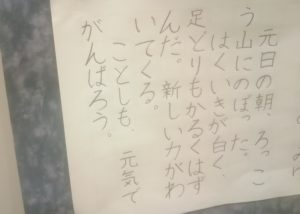 元日の朝、ろっこ
う山にのぼった。
はくいきが白く、
足どりもかるくはず
んだ。新しい力がわ
いてくる。
ことしも、元気で
がんばろう。